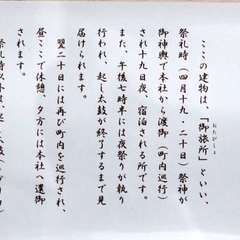 ここの建物は、「御旅所」といい、
おたびしょ
祭礼時(四月十九・二十日)祭神が
御神輿で本社から渡御(町内巡行)
され十九日夜、宿泊される所です。
また、午後七時半には夜祭りが執り
行われ、起し太鼓が終了するまで見
届けられます。
翌二十日には再び町内を巡行され、
昼ここで休憩、夕方には本社へ還御
されます。